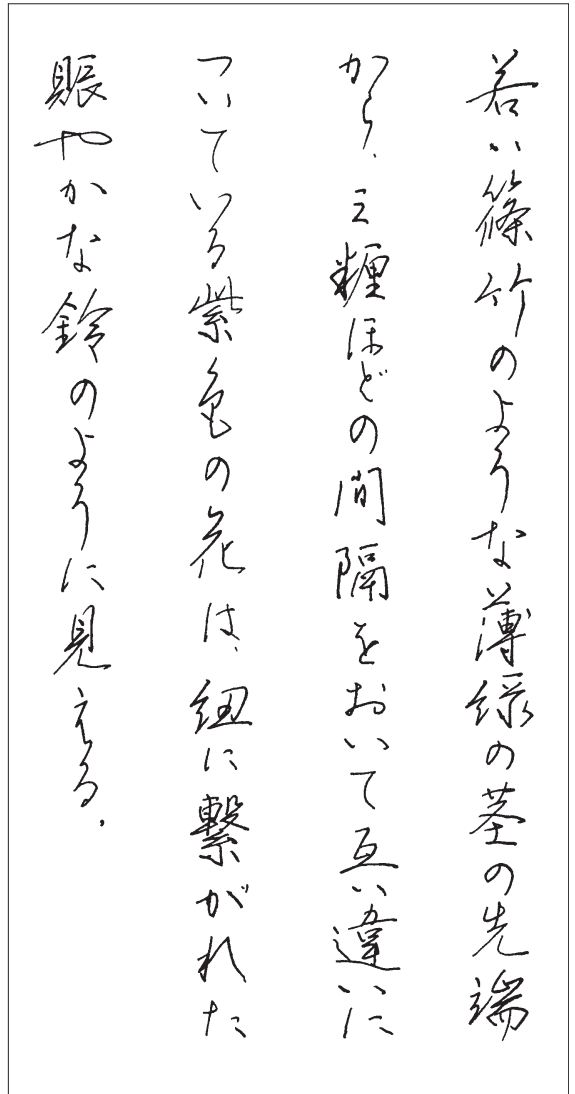 若い篠竹のような薄緑の茎の先端
から、三糎ほどの間隔をおいて互い違いに
ついている紫色の花は、紐に繋がれた
賑やかな鈴のように見える。